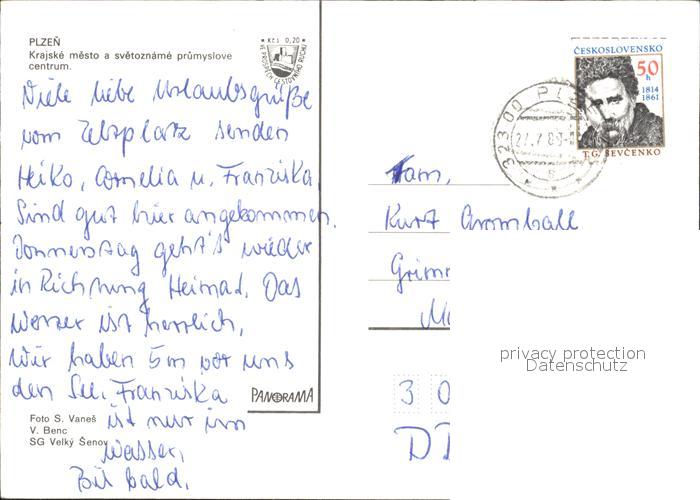 PLZEŇ
Krajské město a světoznámé průmyslove
centrum.
Kčs 0,20
VE PROSPĚCH CESTOVNÍHO RUCHU
Viele liebe Urlaubsgrüße
vom Zeltplatz senden
Heiko, Cornelia u. Franziska
Sind gut hier angekommen.
Donnerstag geht's wieder
in Richtung Heimad. Das
Wetter ist herrlich,
Wir haben 5m vor uns
den See. Franziska
ist nur im
Wasser,
Bis bald.
PANORAMA
Foto S. Vaneš
V. Benc
SG Velký Šenov
ČESKOSLOVENSKO
50
h
1814
1861
T.G. ŠEVČENKO
323 00 PL
27.7.89
Fam.
Kurt
Grimm
privacy protection
Datenschutz
3 0